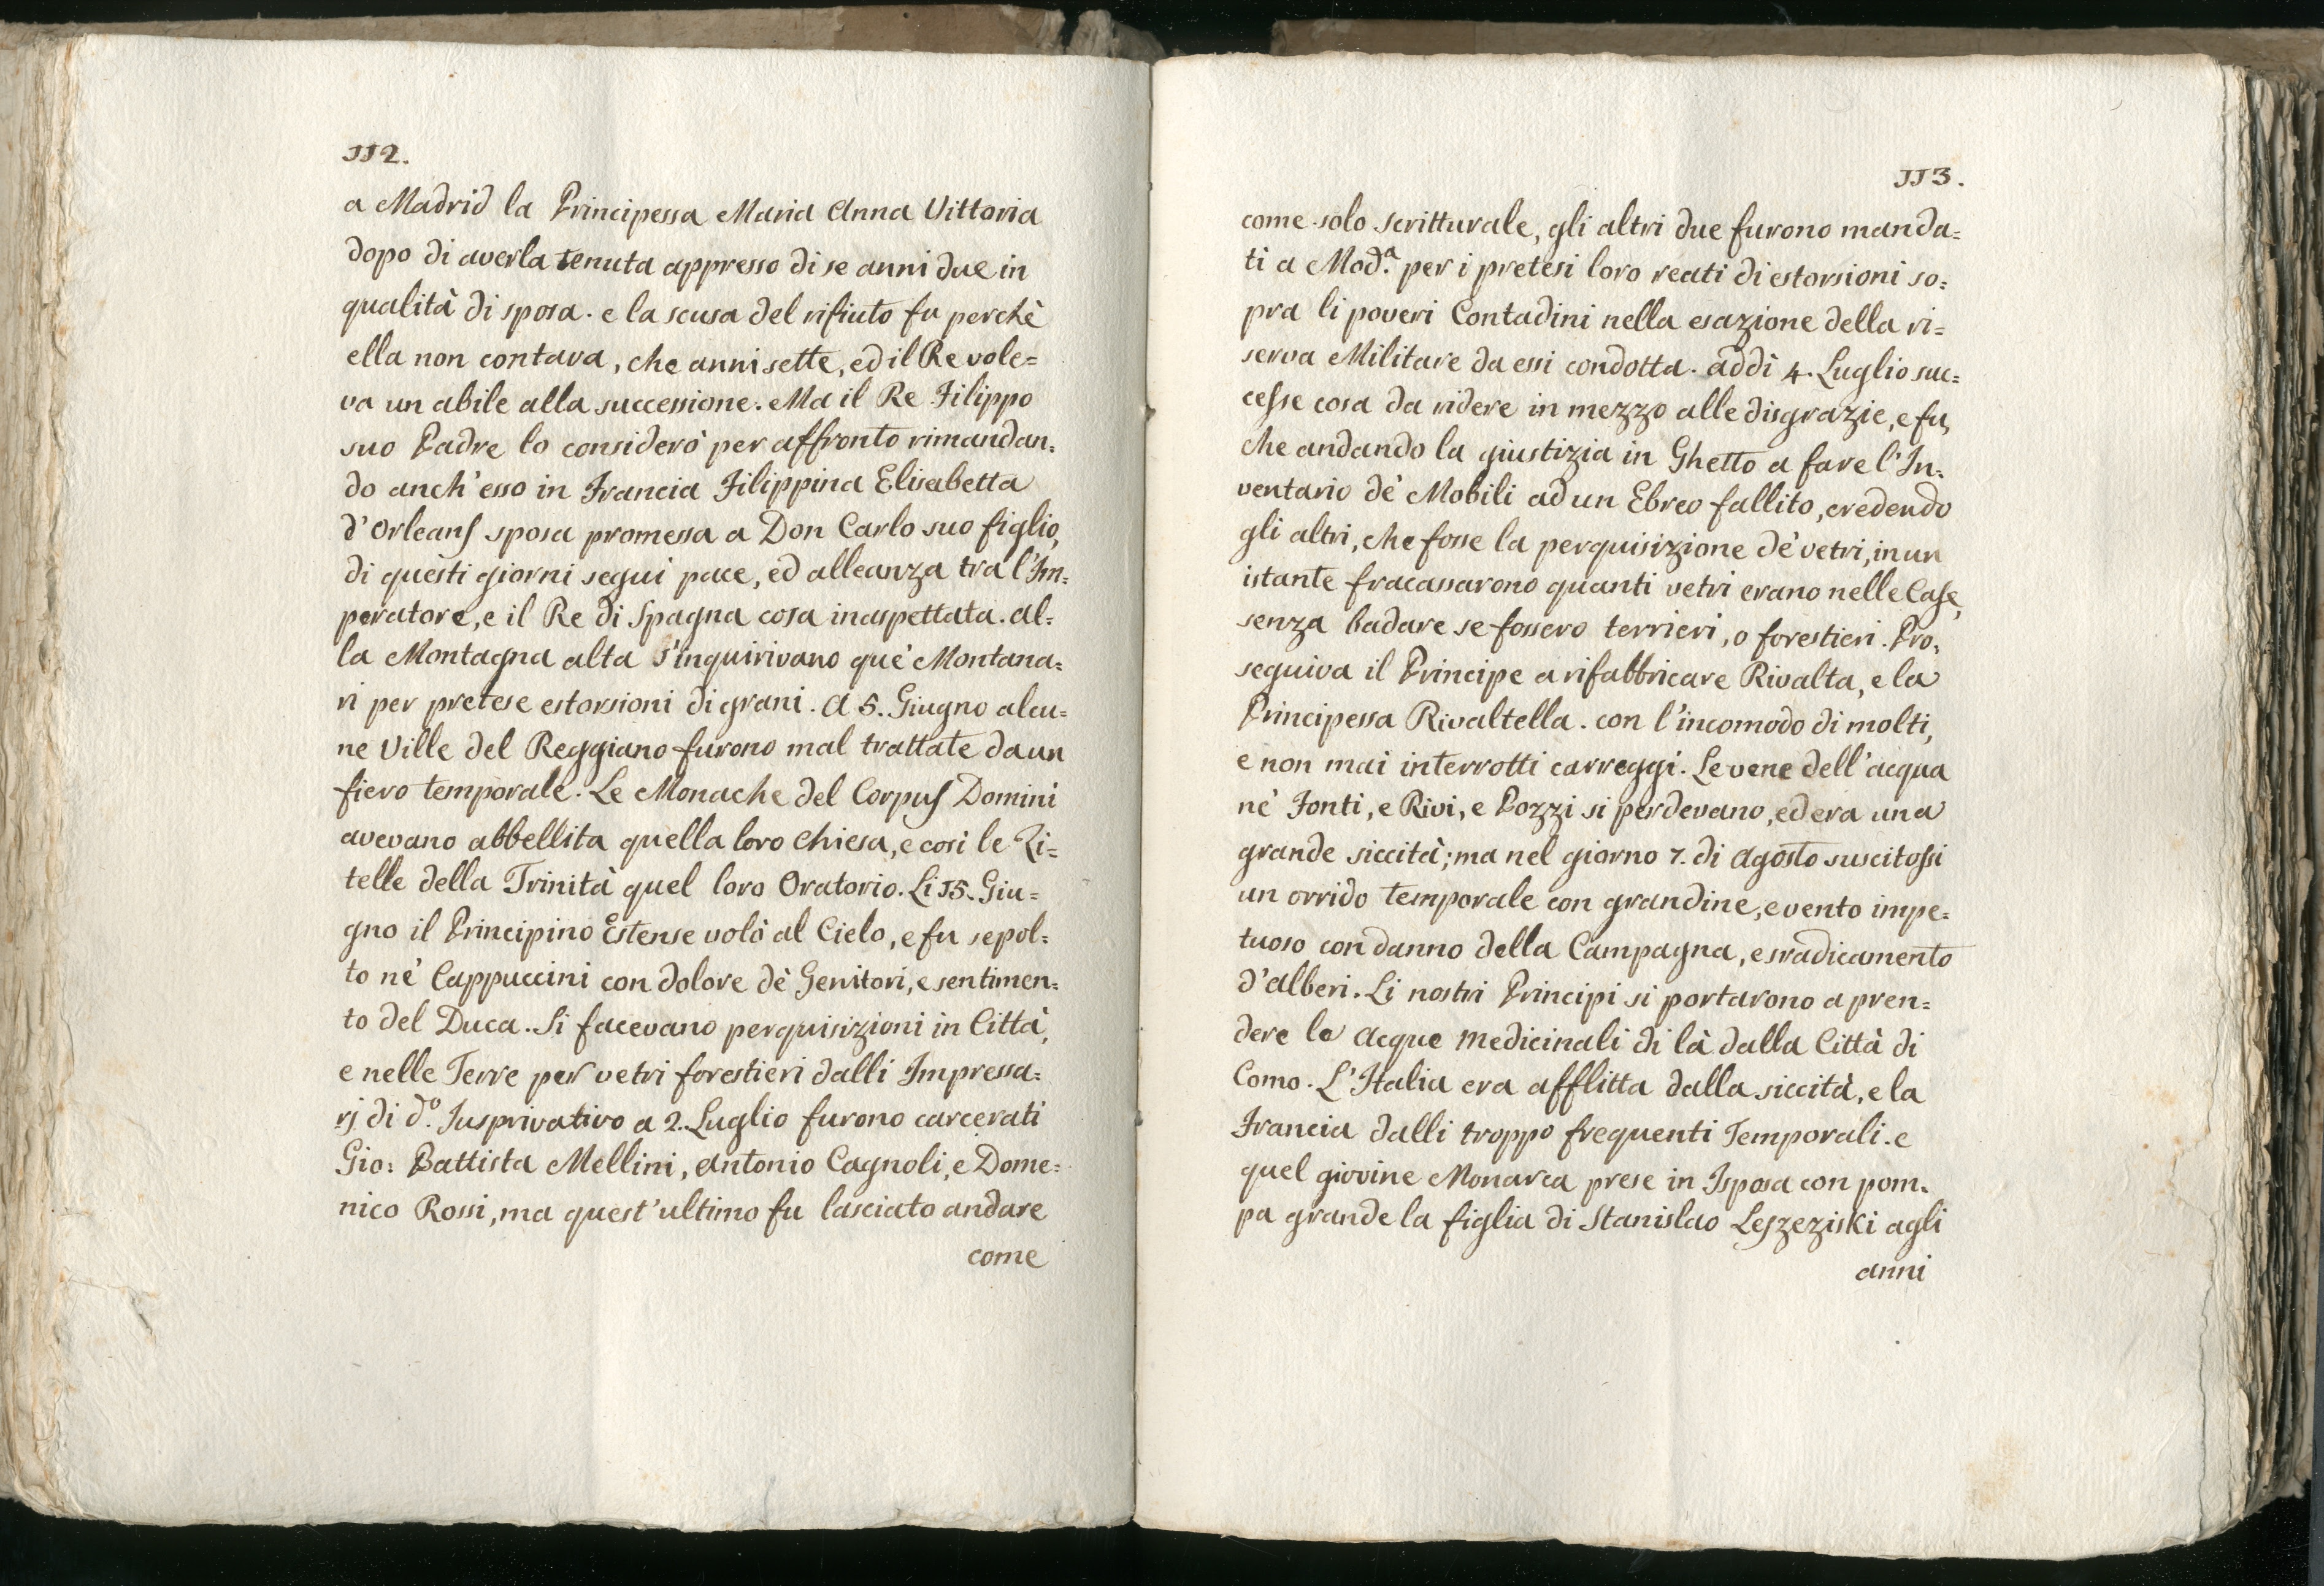 112.
a Madrid la Principessa Maria Anna Vittoria
dopo di averla tenuta appresso di se anni due in
qualità di sposa. e la scusa del rifiuto fu perchè
ella non contava, che anni sette, ed il Re vole=
va un abile alla successione. Ma il Re Filippo
suo Padre lo considerò per affronto rimandan=
do anch'esso in Francia Filippina Elisabetta
d'Orleans sposa promessa a Don Carlo suo figlio,
di questi giorni seguì pace, ed alleanza tra l'Im=
peratore, e il Re di Spagna cosa inaspettata. Al=
la Montagna alta s'inquirivano que' Montana=
ri per pretese estorsioni di grani. A 5. Giugno alcu=
ne Ville del Reggiano furono mal trattate da un
fiero temporale. Le Monache del Corpus Domini
avevano abbellita quella loro Chiesa, e così le Zi=
telle della Trinità quel loro Oratorio. Li 15. Giu=
gno il Principino Estense volò al Cielo, e fu sepol=
to nè Cappuccini con dolore dè Genitori, e sentimen=
to del Duca. Si facevano perquisizioni in Città,
e nelle Terre per vetri forestieri dalli Impressa=
rj di d.º Jusprivativo a 2. Luglio furono carcerati
Gio: Battista Mellini, Antonio Cagnoli, e Dome=
nico Rossi, ma quest'ultimo fu lasciato andare
come
113.
come solo scritturale, gli altri due furono manda=
ti a Mod.ª per i pretesi loro reati di estorsioni so=
pra li poveri Contadini nella esazione della ri=
serva Militare da essi condotta. addì 4. Luglio suc=
cesse cosa da ridere in mezzo alle disgrazie, e fu,
che andando la giustizia in Ghetto a fare l'In=
ventario de' Mobili ad un Ebreo fallito, credendo
gli altri, che fosse la perquisizione de' vetri, in un
istante fracassarono quanti vetri erano nelle Case,
senza badare se fossero terrieri, o forestieri. Pro=
seguiva il Principe a rifabbricare Rivalta, e la
Principessa Rivaltella. con l'incomodo di molti,
e non mai interrotti carreggi. Le vene dell'acqua
ne' Fonti, e Rivi, e Pozzi si perdevano, ed era una
grande siccità; ma nel giorno 7. di Agosto suscitossi
un orrido temporale con grandine, e vento impe=
tuoso con danno della Campagna, e sradicamento
d'alberi. Li nostri Principi si portarono a pren=
dere le Acque Medicinali di là dalla Città di
Como. L'Italia era afflitta dalla siccità, e la
Francia dalli troppo frequenti Temporali. e
quel giovine Monarca prese in Isposa con pom=
pa grande la figlia di Stanislao Leszeziski agli
anni